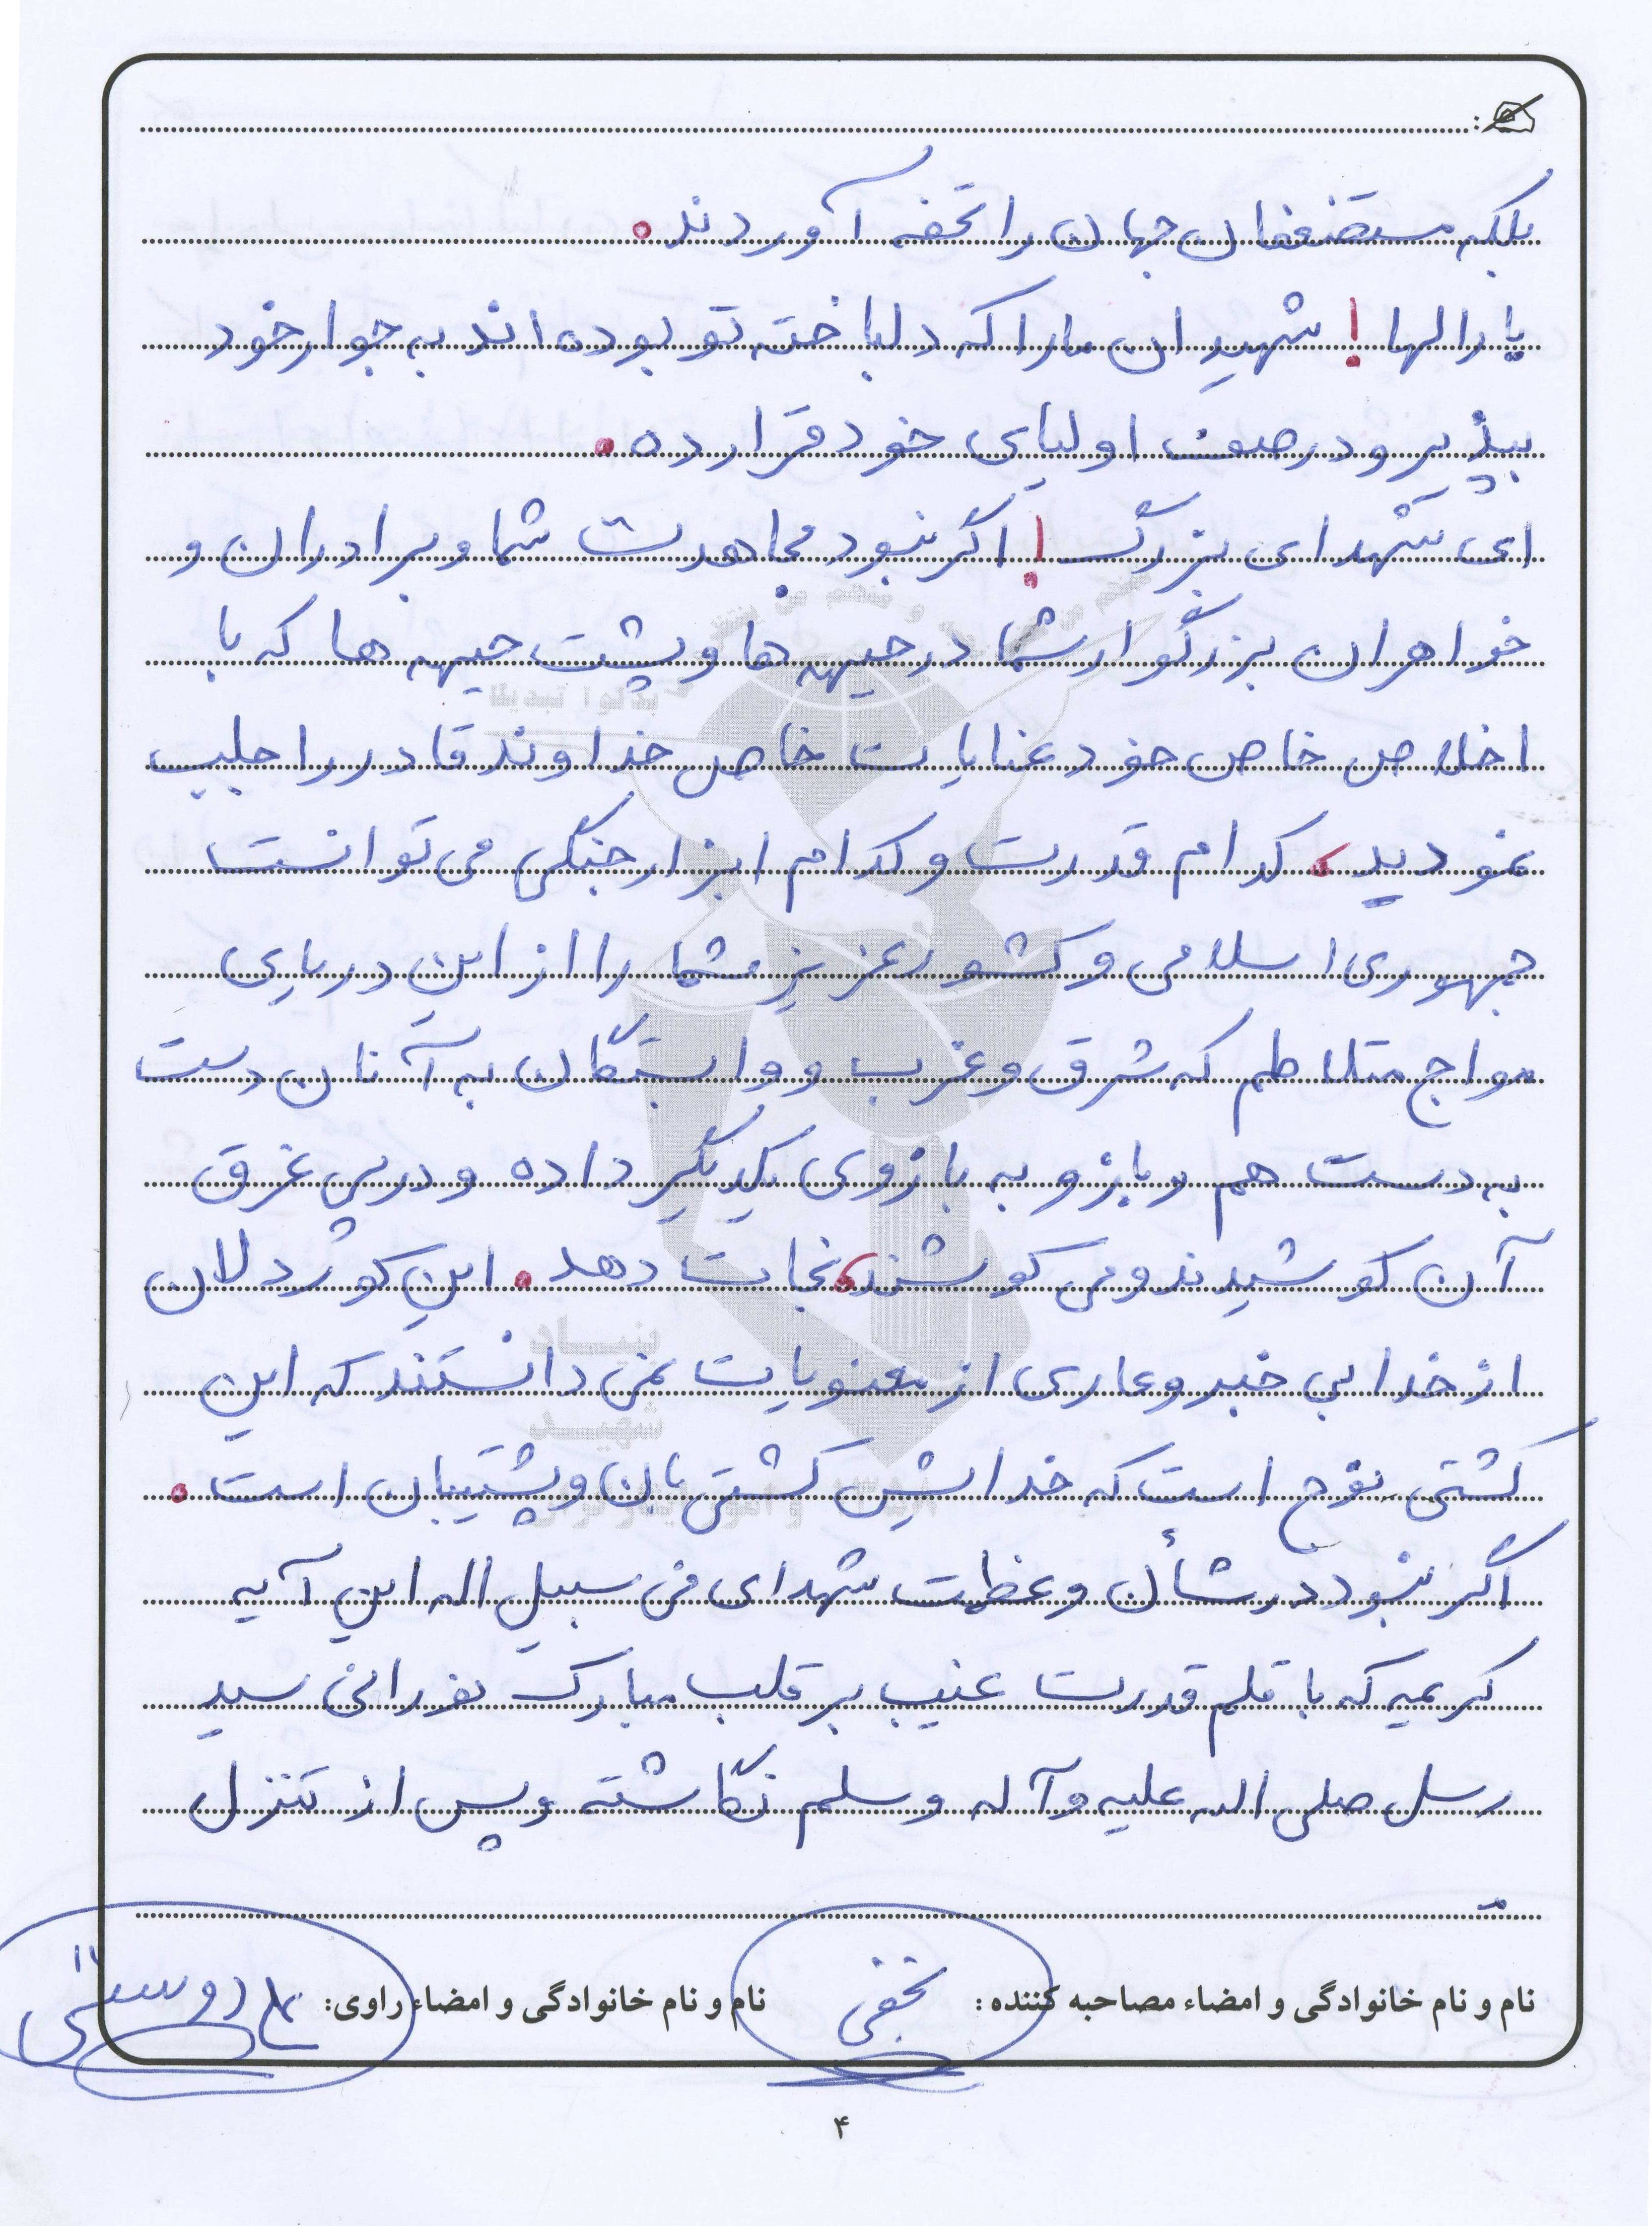 بلکه مستضعفان جهان را تحفه آوردند.
بارالها! شهیدان ما را که دلباخته تو بوده اند به جوار خود
بپذیر و در صف اولیای خود قرار ده.
ای شهدای بزرگ! اگر نبود مجاهدت شما و برادران و
خواهران بزرگوار شما در جبهه ها و پشت جبهه ها که با
اخلاص خاص خود عنایات خاص خداوند قادر را جلب
نمودید، کدام قدرت و کدام ابزار جنگی می توانست
جمهوری اسلامی و کشور عزیز شما را از این دریایی
مواج متلاطم که شرق و غرب و وابستگان به آنان دست
به دست هم و بازو به بازوی یکدیگر داده و در پی غرق
آن کوشیدند و می کوشند، نجات دهد. این کوردلان
از خدا بی خبر و عاری از معنویات نمی دانستند که این
کشتی نوح است که خدایش کشتی بان و پشتیبان است.
اگر نبود در شأن و عظمت شهدای فی سبیل اله این آیه
کریمه که با قلم قدرت غیب بر قلب مبارک نورانی سید
رسل صلی اله علیه و آله وسلم نگاشته و پس از تنزل
نام و نام خانوادگی و امضاء مصاحبه کننده: نجفی نام و نام خانوادگی و امضاء راوی:
۴